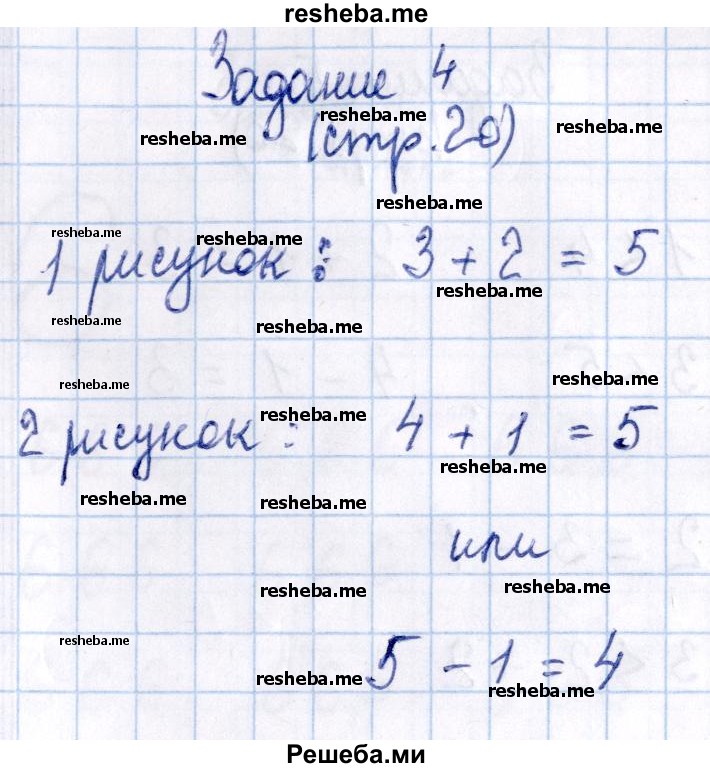 resheba.me
Задание 4
resheba.me resheba.me resheba.me
(стр.20)
resheba.me
resheba.me resheba.me
1 рисунок: 3 + 2 = 5
resheba.me
resheba.me resheba.me
resheba.me resheba.me
resheba.me
2 рисунок: 4 + 1 = 5
resheba.me
resheba.me resheba.me
или
resheba.me resheba.me
resheba.me
5 - 1 = 4
resheba.me resheba.me
Решеба.ми